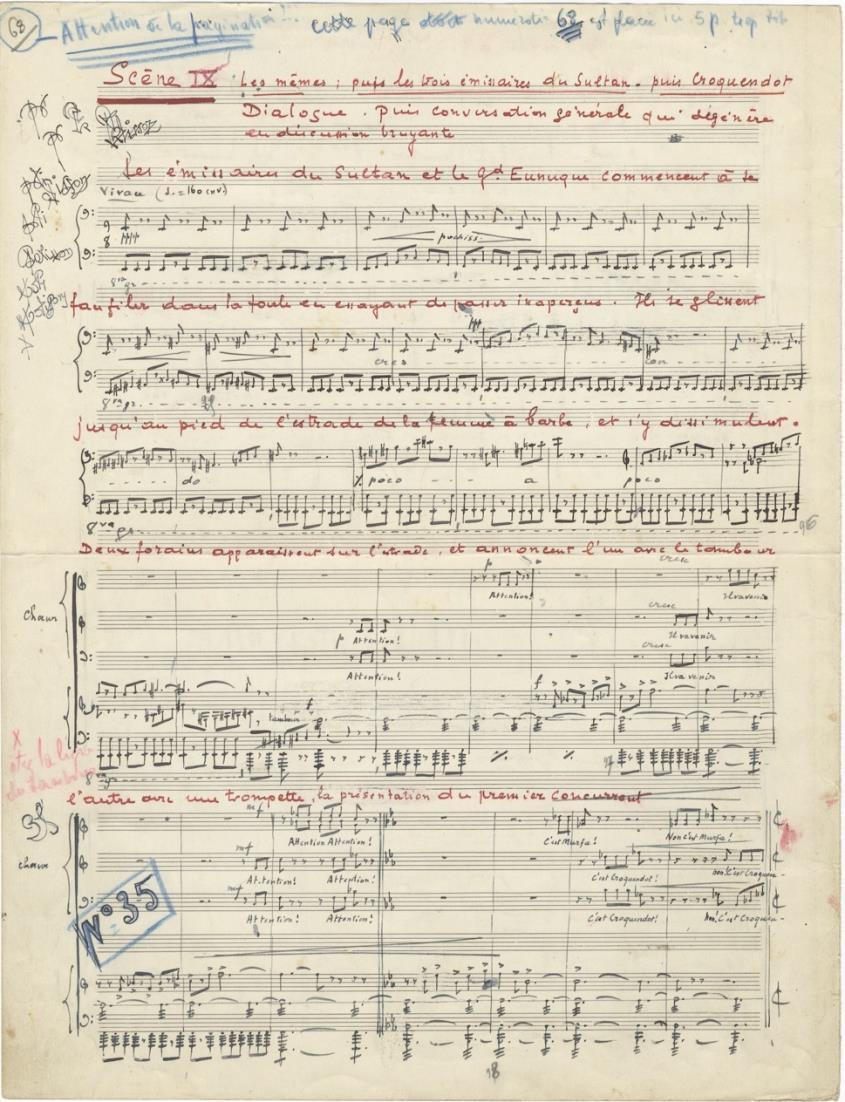 68
Attention de la pagination !!! cette page numerotée 68 est placée ici 5 p. trop tôt
Scène IX Les mêmes ; puis les trois émissaires du Sultan . puis Croquendot
Dialogue . Puis conversation générale qui dégénère
en discussion bruyante
Les émissaires du Sultan et le Gd Eunuque commencent à se
Vivace
8va gr
faufiler dans la foule en essayant de passer inaperçus . Ils se glissent
cres - cen
8va gr
jusqu'au pied de l'estrade de la femme à barbe, et s'y dissimulent .
do poco a poco
8va gr
96
Deux forains apparaissent sur l'estrade, et annoncent l'un avec le tambour
cresc
p
Attention! Il va venir
Chœur
cresc
p Attention! Il va venir
cresc
Attention! Il va venir
tambour f f
X
ôtez la ligne
du tambour
8va
l'autre avec une trompette, la présentation du premier concurrent
35
mf
Attention Attention! C'est Murfa! Non c'est Murfa!
chœur
mf
Attention! Attention! C'est Croquendot! non! C'est Croquen-
mf
Attention! Attention! C'est Croquendot! non! C'est Croquen-
N° 35
18